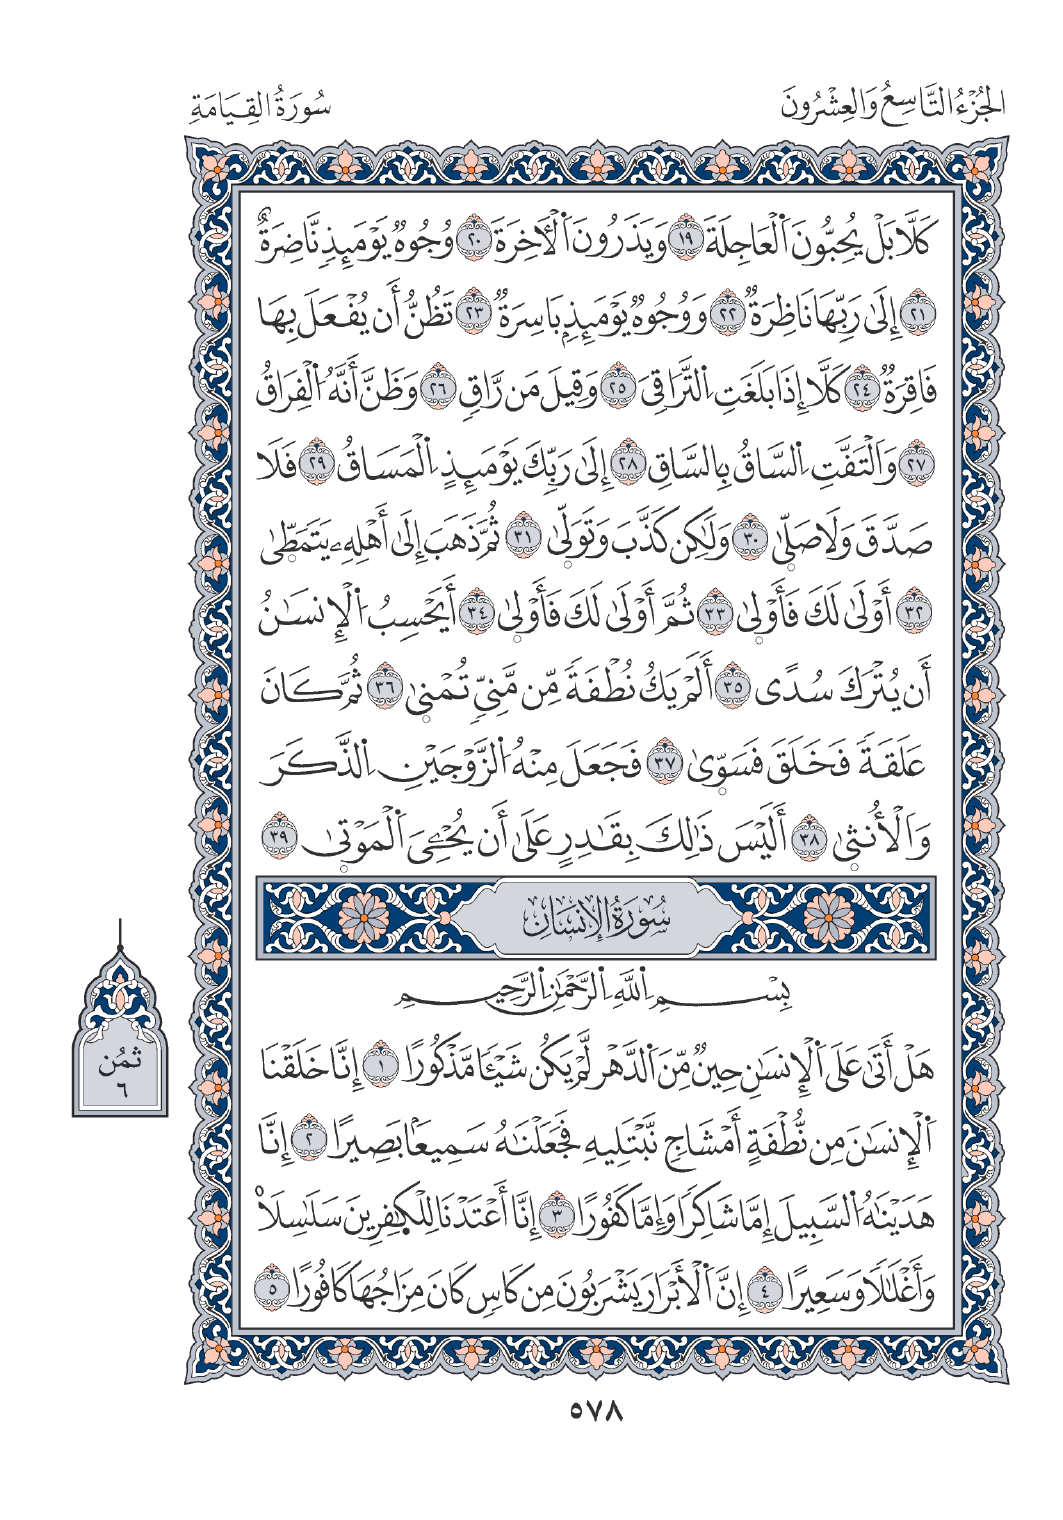 الجُزْءُ التَّاسِعُ وَالعِشْرُونَ
سُورَةُ القِيَامَةِ
كَلَّا بَلْ يُحِبُّونَ اَ۬لْعَاجِلَةَ ١٩ وَيَذَرُونَ اَ۬لْأٓخِرَةَ ٢٠ وُجُوهٌ يَوْمَئِذٖ نَّاضِرَةٌ
٢١ إِلَىٰ رَبِّهَا نَاظِرَةٌ ٢٢ وَوُجُوهٌ يَوْمَئِذِۢ بَاسِرَةٌ ٢٣ تَظُنُّ أَن يُفْعَلَ بِهَا
فَاقِرَةٌ ٢٤ كَلَّا إِذَا بَلَغَتِ اِ۬لتَّرَاقِيَ ٢٥ وَقِيلَ مَن رَّاقٖ ٢٦ وَظَنَّ أَنَّهُ اُ۬لْفِرَاقُ
٢٧ وَالْتَفَّتِ اِ۬لسَّاقُ بِالسَّاقِ ٢٨ إِلَىٰ رَبِّكَ يَوْمَئِذٍ اِ۬لْمَسَاقُ ٢٩ فَلَا
صَدَّقَ وَلَا صَلّ۪ىٰ ٣٠ وَلَٰكِن كَذَّبَ وَتَوَلّ۪ىٰ ٣١ ثُمَّ ذَهَبَ إِلَىٰ أَهْلِهِۦ يَتَمَطّ۪ىٰ
٣٢ أَوْلَىٰ لَكَ فَأَوْل۪ىٰ ٣٣ ثُمَّ أَوْلَىٰ لَكَ فَأَوْل۪ىٰ ٣٤ أَيَحْسِبُ اُ۬لْإِنسَٰنُ
أَن يُتْرَكَ سُدًى ٣٥ أَلَمْ يَكُ نُطْفَةً مِّن مَّنِيّٖ تُمْن۪ىٰ ٣٦ ثُمَّ كَانَ
عَلَقَةً فَخَلَقَ فَسَوّ۪ىٰ ٣٧ فَجَعَلَ مِنْهُ اُ۬لزَّوْجَيْنِ اِ۬لذَّكَرَ
وَالْأُنث۪ىٰ ٣٨ أَلَيْسَ ذَٰلِكَ بِقَٰدِرٍ عَلَىٰ أَن يُحْـِۧيَ اَ۬لْمَوْت۪ىٰ ٣٩
سُورَةُ الإِنسَانِ
بِسْمِ اِ۬للَّهِ اِ۬لرَّحْمَٰنِ اِ۬لرَّحِيمِ
هَلْ أَتَىٰ عَلَى اَ۬لْإِنسَٰنِ حِينٌ مِّنَ اَ۬لدَّهْرِ لَمْ يَكُن شَيْـًٔا مَّذْكُورًا ١ إِنَّا خَلَقْنَا
اَ۬لْإِنسَٰنَ مِن نُّطْفَةٍ أَمْشَاجٖ نَّبْتَلِيهِ فَجَعَلْنَٰهُ سَمِيعَۢا بَصِيرًا ٢ إِنَّا
هَدَيْنَٰهُ اُ۬لسَّبِيلَ إِمَّا شَاكِرًا وَإِمَّا كَفُورًا ٣ إِنَّا أَعْتَدْنَا لِلْكٰ۪فِرِينَ سَلَٰسِلَاْ
وَأَغْلَٰلًا وَسَعِيرًا ٤ إِنَّ اَ۬لْأَبْرَارَ يَشْرَبُونَ مِن كَاسٖ كَانَ مِزَاجُهَا كَافُورًا ٥
ثُمُن
٦
٥٧٨